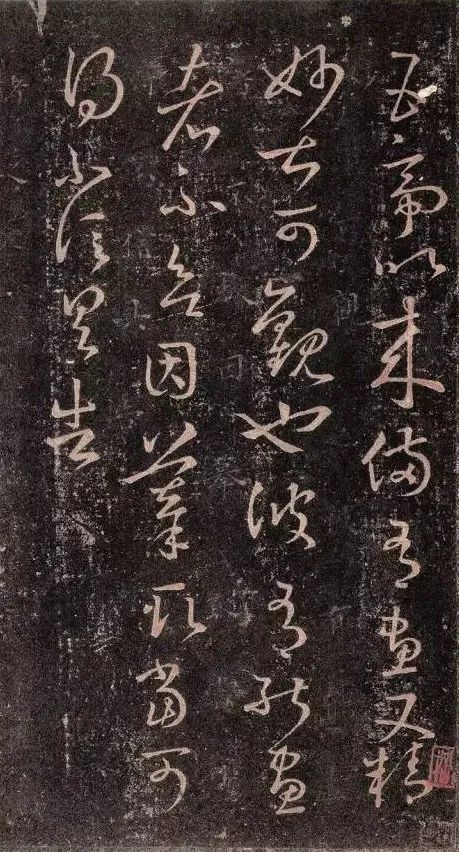 五帝以来备有画又精
妙甚可观也彼有能画
者不欲因摹取当可
得不信具告